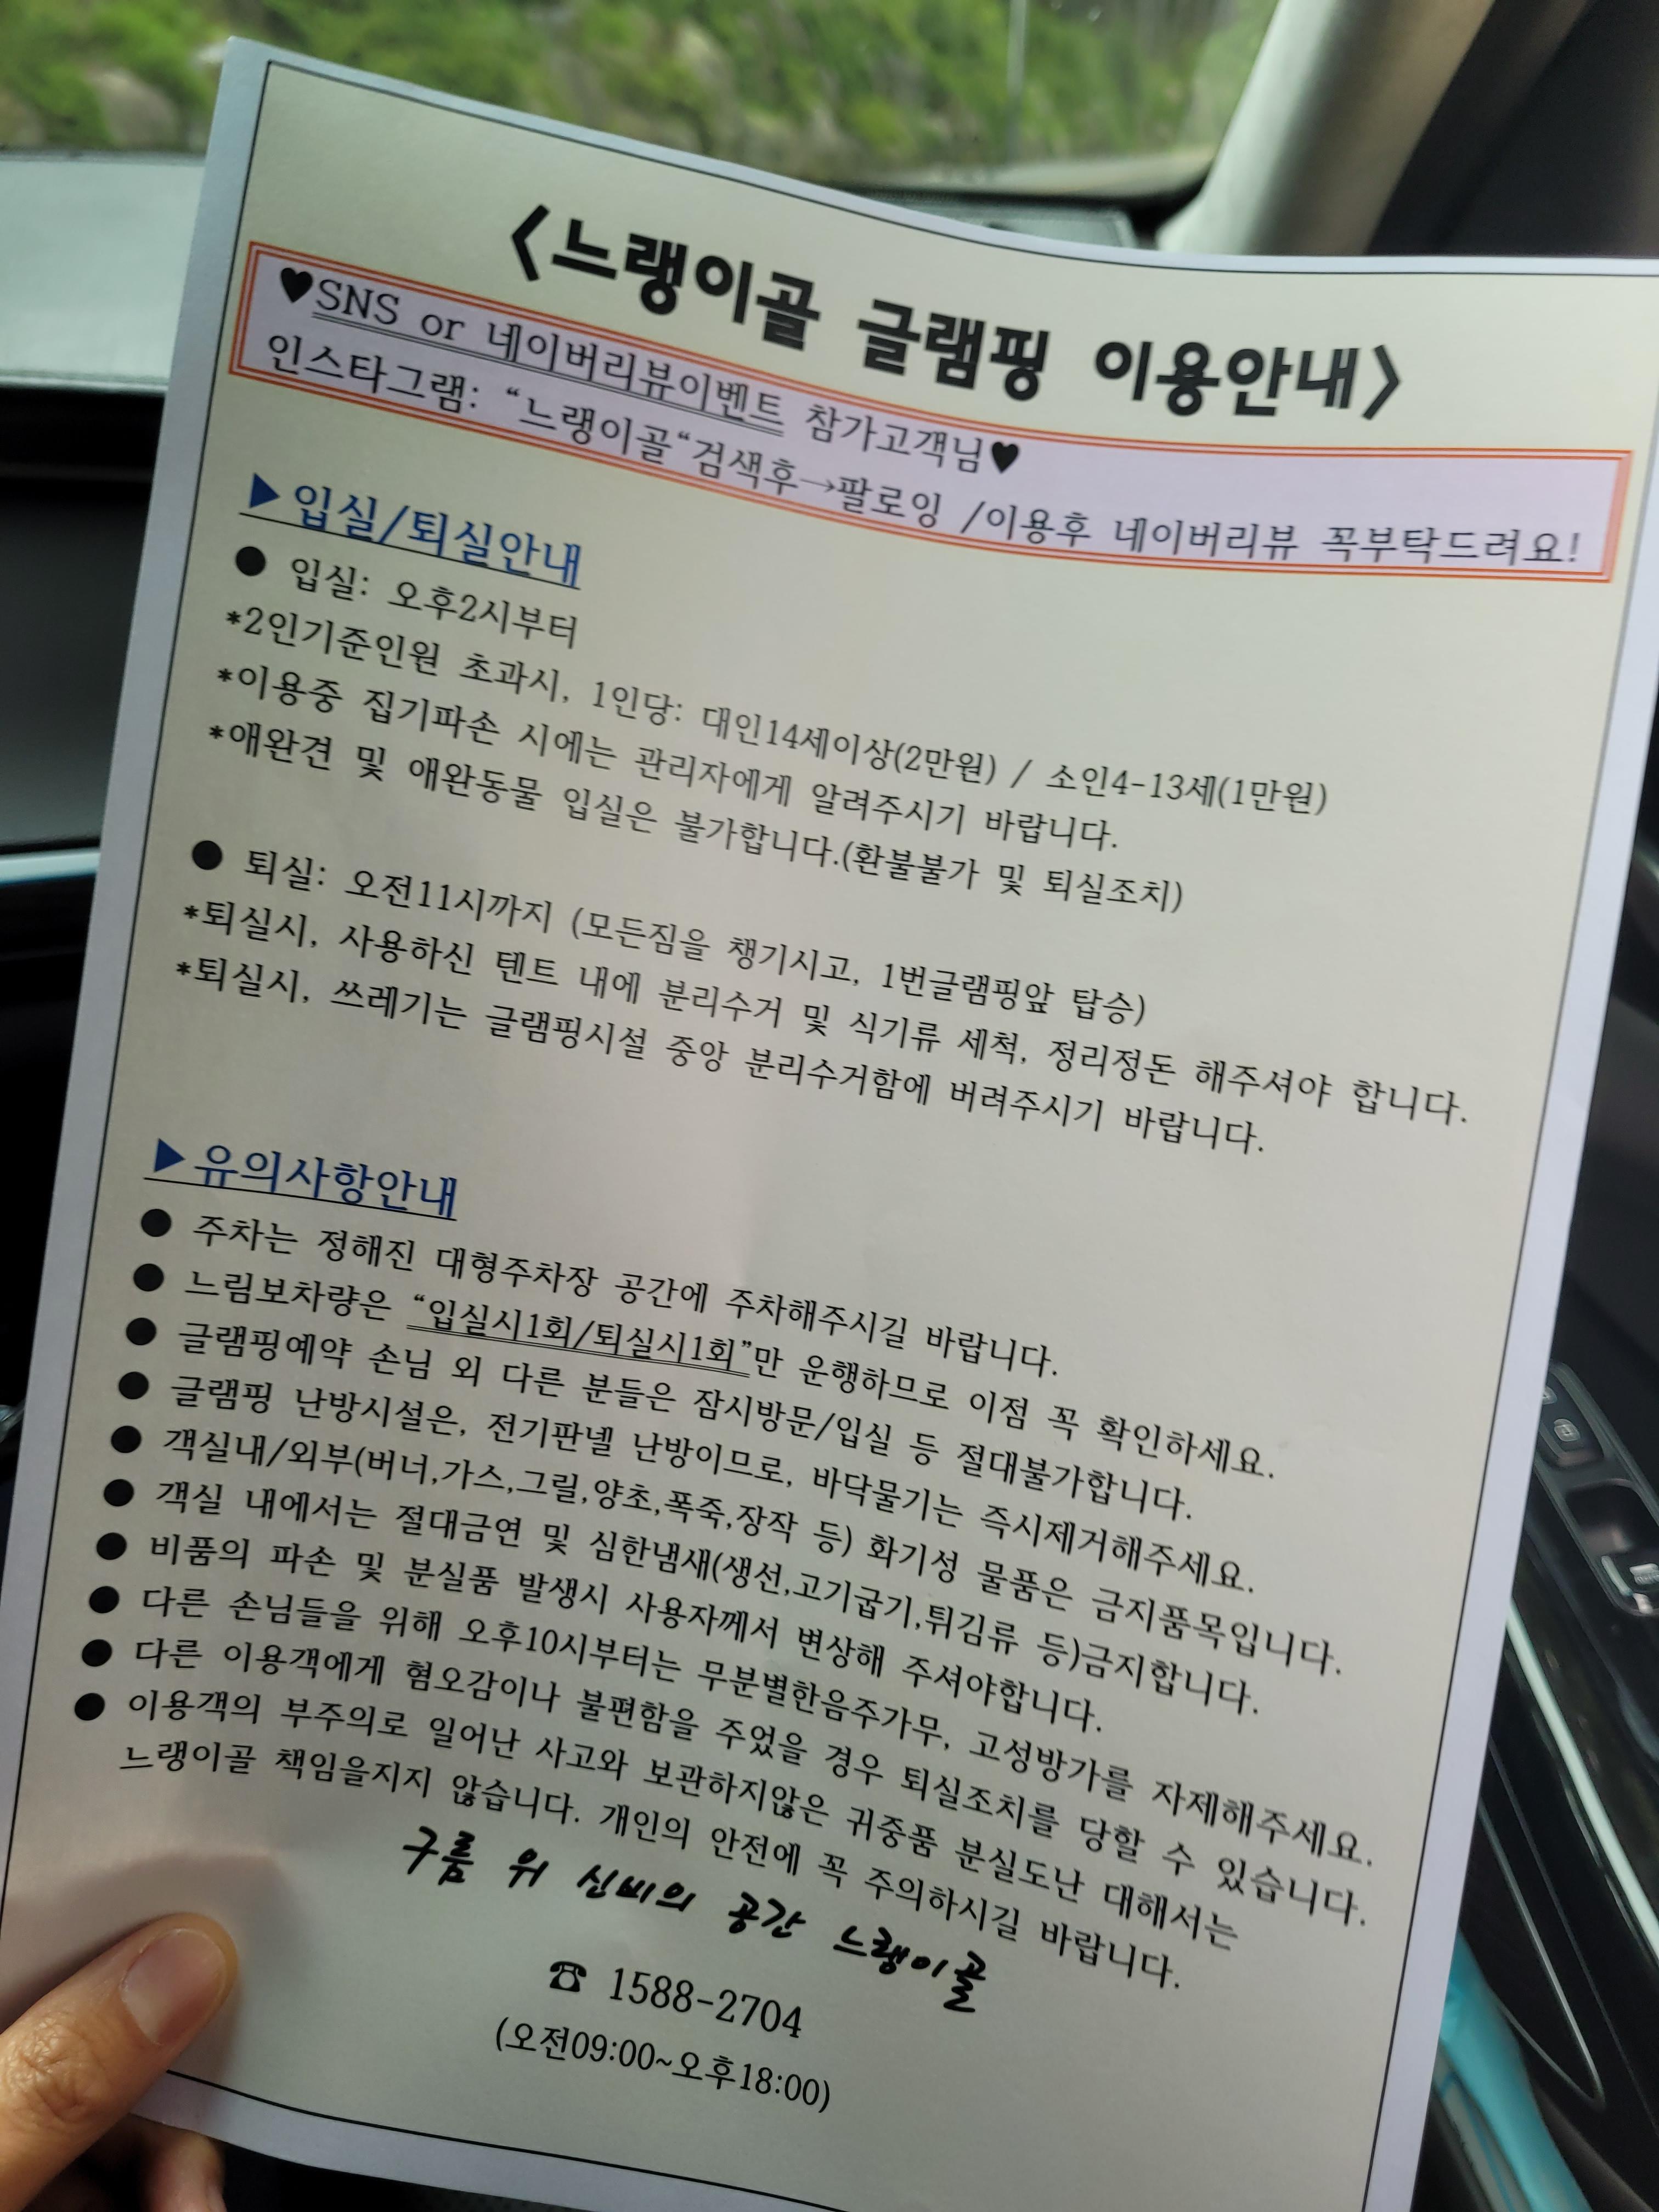 <느랭이골 글램핑 이용안내>
♥SNS or 네이버리뷰이벤트 참가고객님♥
인스타그램: “느랭이골“검색후→팔로잉 /이용후 네이버리뷰 꼭부탁드려요!
▶입실/퇴실안내
● 입실: 오후2시부터
*2인기준인원 초과시, 1인당: 대인14세이상(2만원) / 소인4-13세(1만원)
*이용중 집기파손 시에는 관리자에게 알려주시기 바랍니다.
*애완견 및 애완동물 입실은 불가합니다.(환불불가 및 퇴실조치)
● 퇴실: 오전11시까지 (모든짐을 챙기시고, 1번글램핑앞 탑승)
*퇴실시, 사용하신 텐트 내에 분리수거 및 식기류 세척, 정리정돈 해주셔야 합니다.
*퇴실시, 쓰레기는 글램핑시설 중앙 분리수거함에 버려주시기 바랍니다.
▶유의사항안내
● 주차는 정해진 대형주차장 공간에 주차해주시길 바랍니다.
● 느림보차량은 “입실시1회/퇴실시1회”만 운행하므로 이점 꼭 확인하세요.
● 글램핑예약 손님 외 다른 분들은 잠시방문/입실 등 절대불가합니다.
● 글램핑 난방시설은, 전기판넬 난방이므로, 바닥물기는 즉시제거해주세요.
● 객실내/외부(버너,가스,그릴,양초,폭죽,장작 등) 화기성 물품은 금지품목입니다.
● 객실 내에서는 절대금연 및 심한냄새(생선,고기굽기,튀김류 등)금지합니다.
● 비품의 파손 및 분실품 발생시 사용자께서 변상해 주셔야합니다.
● 다른 손님들을 위해 오후10시부터는 무분별한음주가무, 고성방가를 자제해주세요.
● 다른 이용객에게 혐오감이나 불편함을 주었을 경우 퇴실조치를 당할 수 있습니다.
● 이용객의 부주의로 일어난 사고와 보관하지않은 귀중품 분실도난 대해서는
느랭이골 책임을지지 않습니다. 개인의 안전에 꼭 주의하시길 바랍니다.
구름 위 신비의 공간 느랭이골
☎ 1588-2704
(오전09:00~오후18:00)